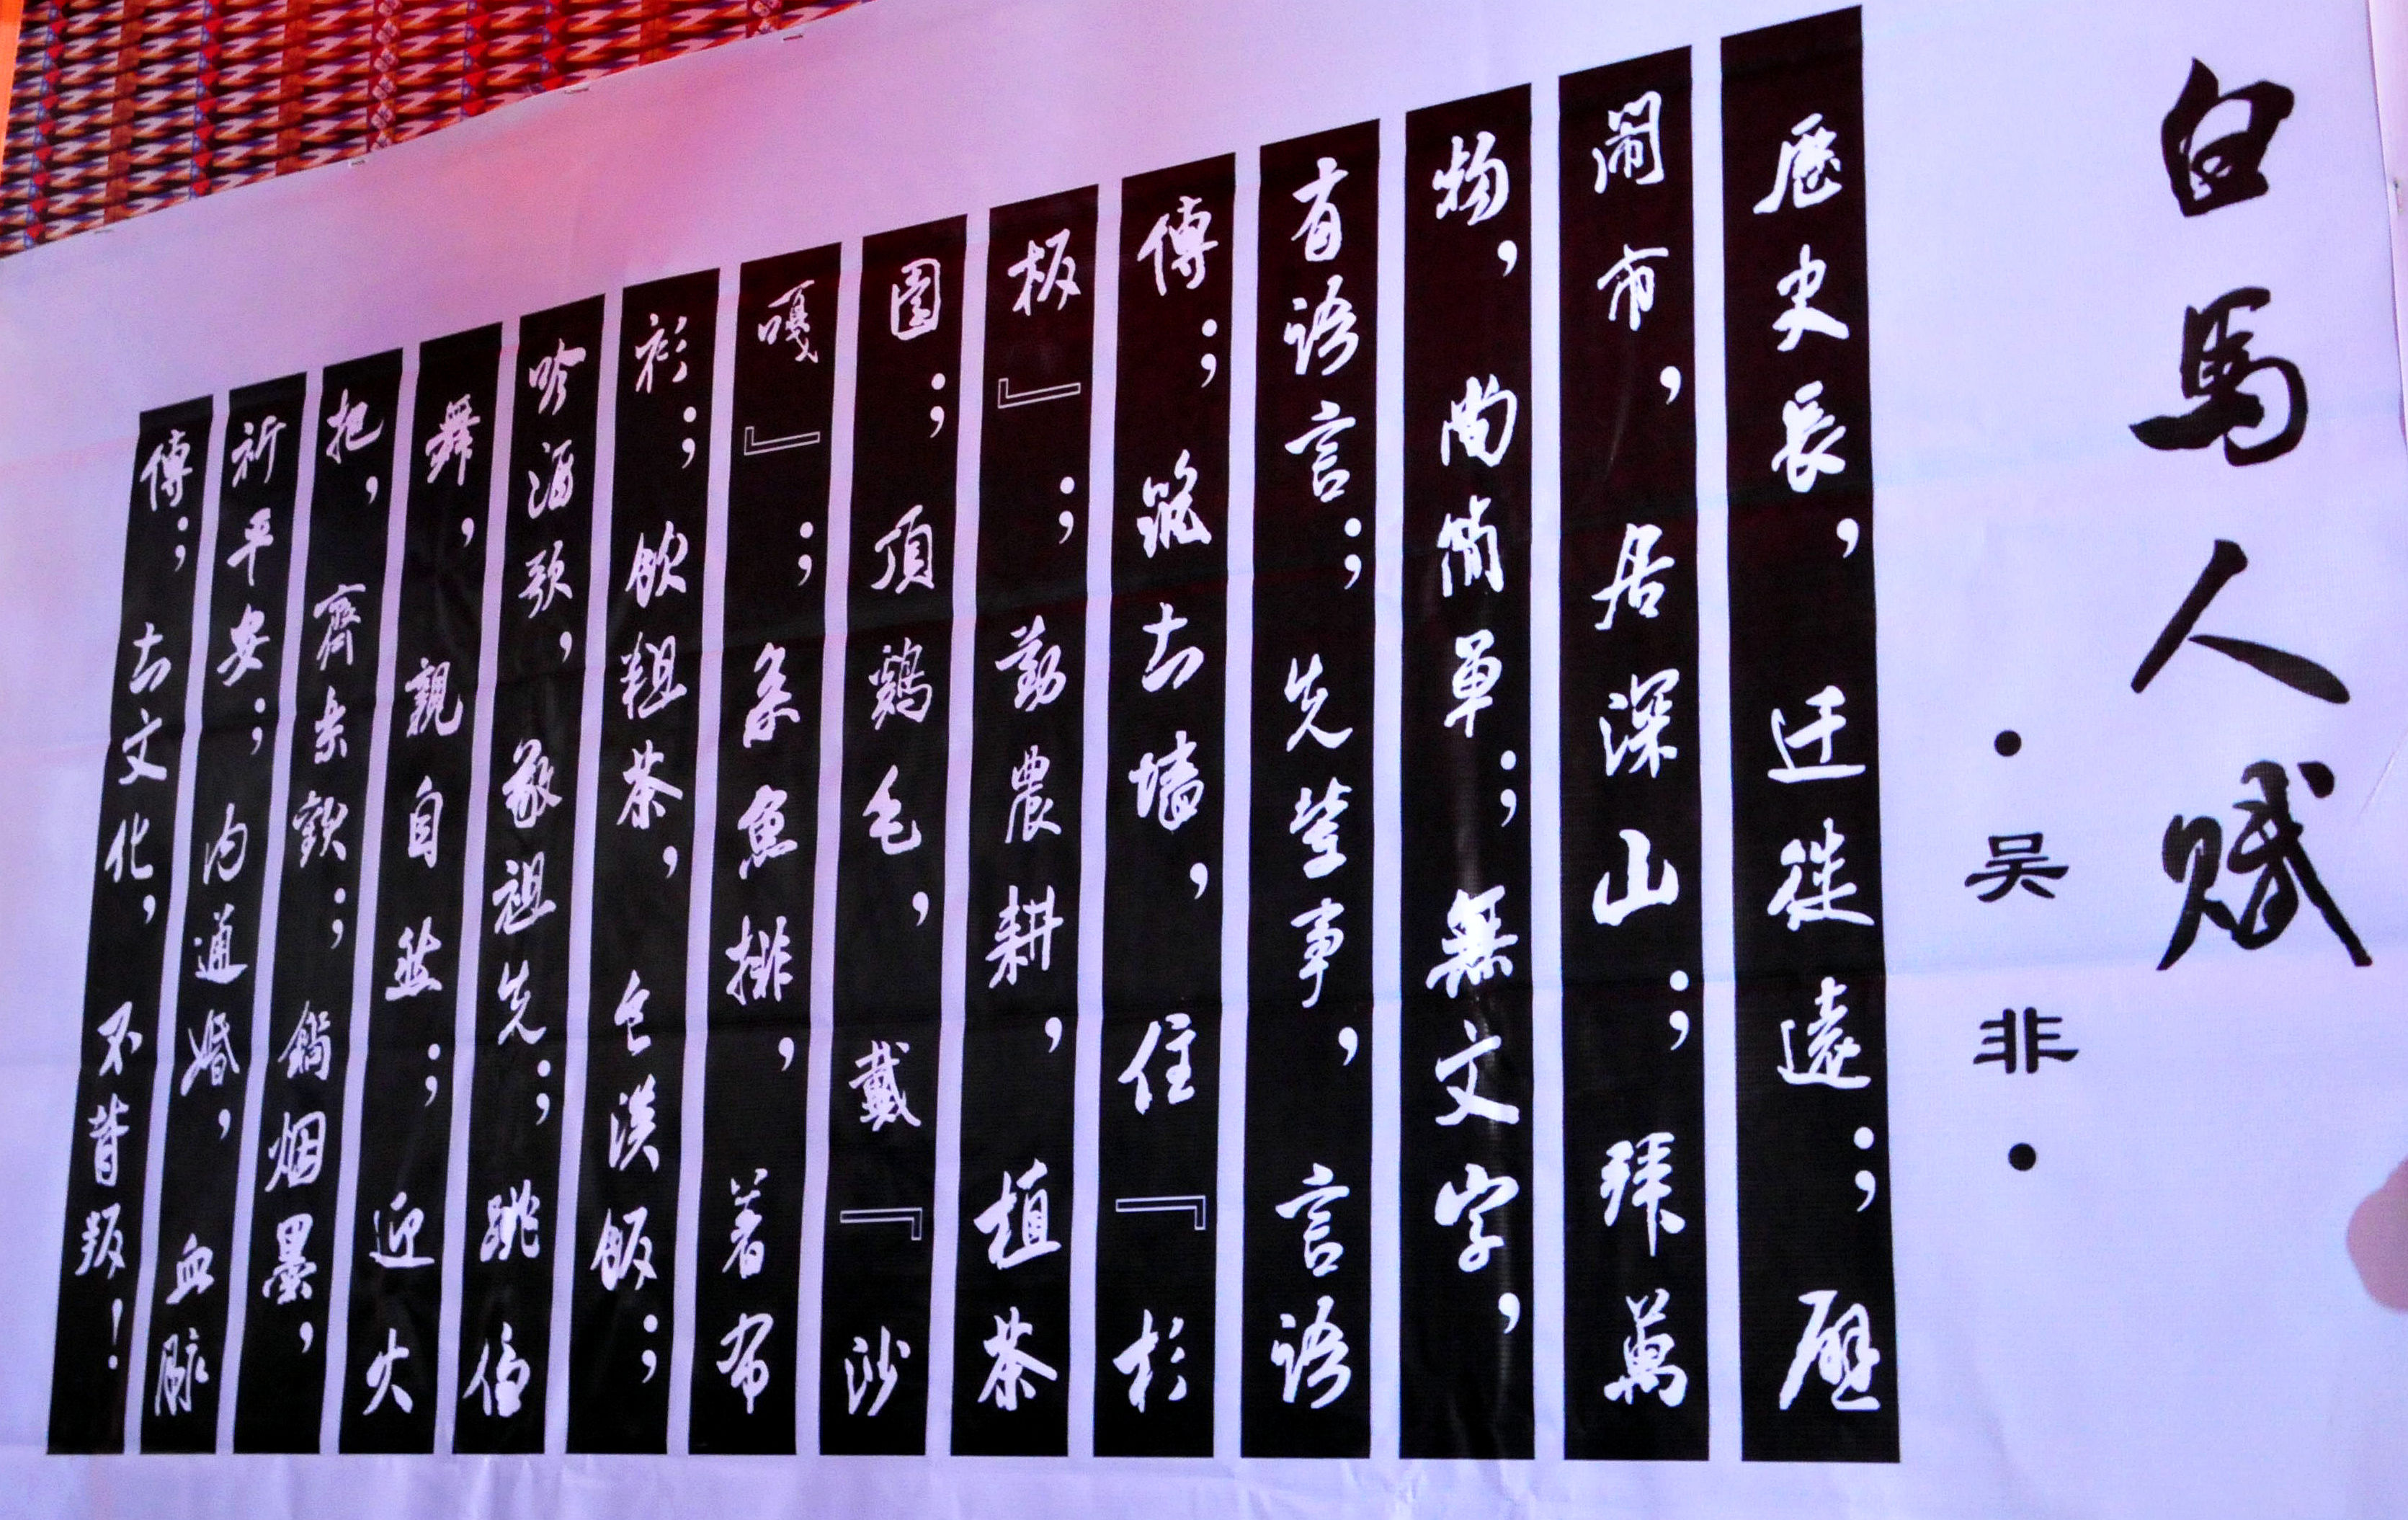 白馬人赋
·吴非·
歷史長，迁徙遠；歷
闹市，居深山；拜萬
物，尚简單；無文字，
有语言；先輩事，言语
傳；筑古墙，住『杉
板』；勤農耕，植茶
園；頂鷄毛，戴『沙
嘎』；系魚排，著布
衫；飲粗茶，包淡飯；
吟酒歌，敬祖先；跳
舞，親自然；迎火
把，齊来歡；鍋烟墨，
祈平安；内通婚，血脉
傳；古文化，不背叛！